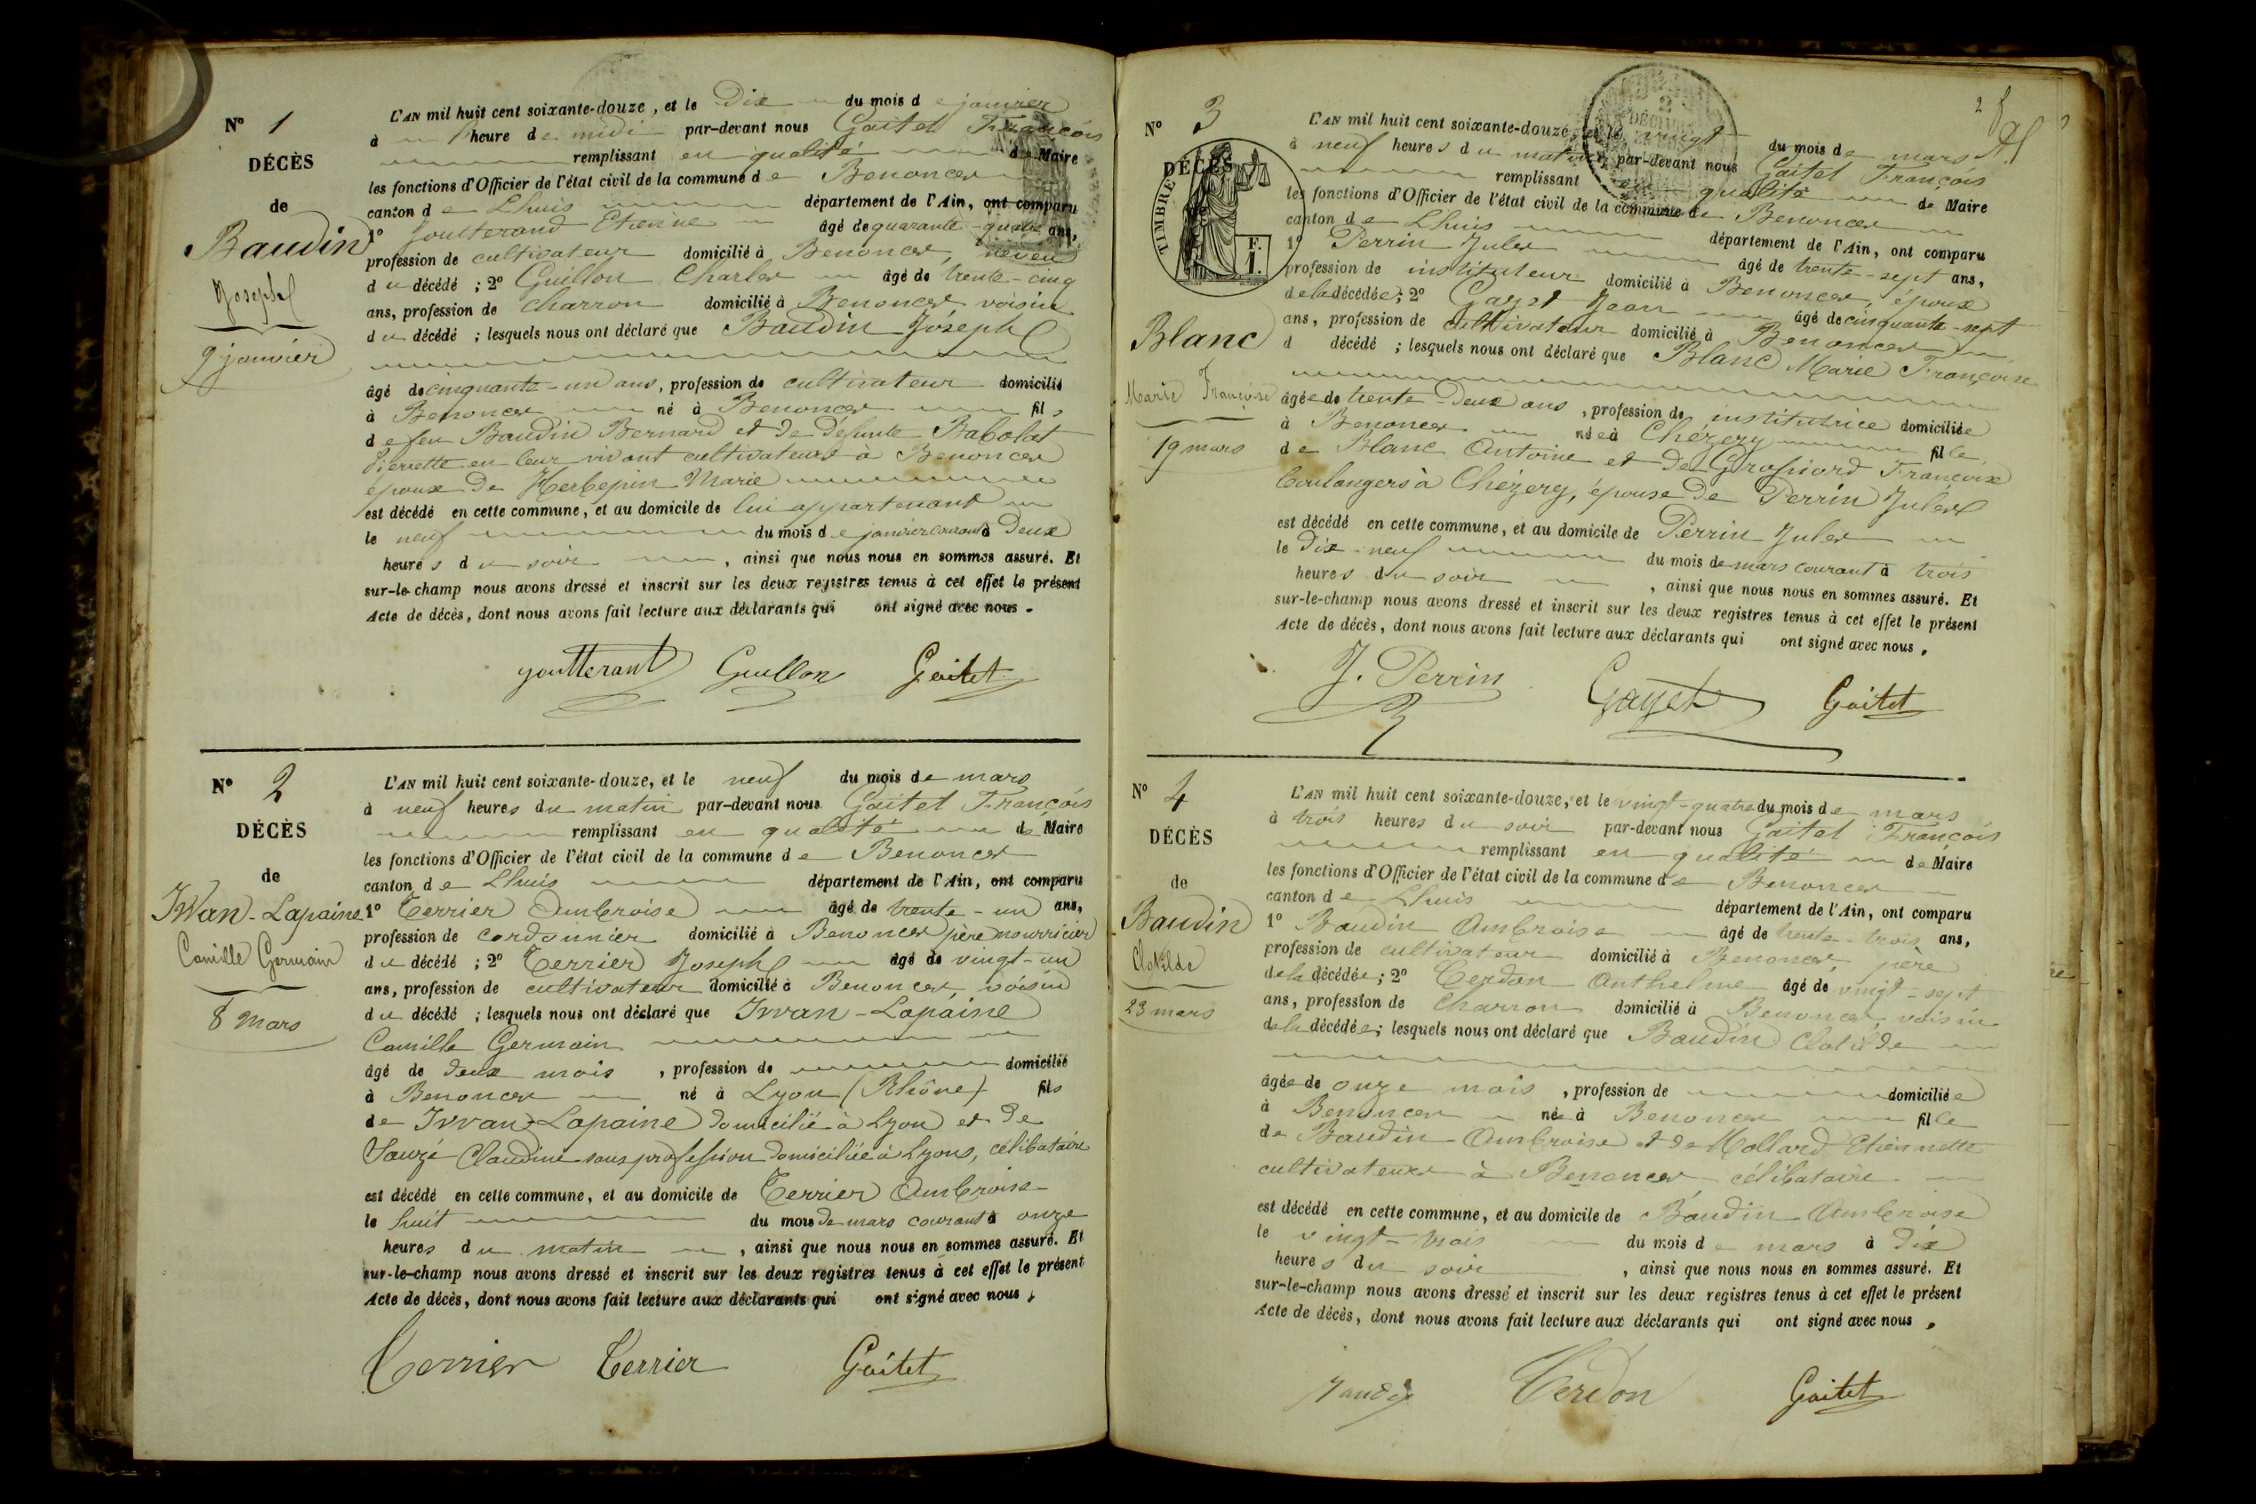 N° 1
DÉCÈS
de
Baudin
Joseph
9 janvier
L'AN mil huit cent soixante-douze, et le Dix du mois de janvier
à heure de midi par-devant nous Gaitet François
remplissant en qualité de Maire
les fonctions d'Officier de l'état civil de la commune de Benonces
canton de Lhuis département de l'Ain, ont comparu
1° Goutterand Etienne âgé de quarante-quatre ans,
profession de cultivateur domicilié à Benonces, neveu
du décédé ; 2° Guillon Charles âgé de trente-cinq
ans, profession de charron domicilié à Benonces voisin
du décédé ; lesquels nous ont déclaré que Baudin Joseph
âgé de cinquante-un ans, profession de cultivateur domicilié
à Benonces né à Benonces fils
de feu Baudin Bernard et de défunte Babolat
Pierrette en leur vivant cultivateurs à Benonces
époux de Herbepin Marie
est décédé en cette commune, et au domicile de lui appartenant
le neuf du mois de janvier courant à Deux
heures du soir , ainsi que nous nous en sommes assuré. Et
sur-le-champ nous avons dressé et inscrit sur les deux registres tenus à cet effet le présent
Acte de décès, dont nous avons fait lecture aux déclarants qui ont signé avec nous.
Goutterant Guillon Gaitet
N° 2
DÉCÈS
de
Ivvan-Lapaine
Camille Germain
8 mars
L'AN mil huit cent soixante-douze, et le neuf du mois de mars
à neuf heures du matin par-devant nous Gaitet François
remplissant en qualité de Maire
les fonctions d'Officier de l'état civil de la commune de Benonces
canton de Lhuis département de l'Ain, ont comparu
1° Terrier Ambroise âgé de trente-un ans,
profession de cordonnier domicilié à Benonces père nourricier
du décédé ; 2° Terrier Joseph âgé de vingt-un
ans, profession de cultivateur domicilié à Benonces, voisin
du décédé ; lesquels nous ont déclaré que Ivvan-Lapaine
Camille Germain
âgé de deux mois , profession de domicilié
à Benonces né à Lyon (Rhône) fils
de Ivvan-Lapaine domicilié à Lyon et de
Sauzé Claudine sans profession domiciliée à Lyons, célibataire
est décédé en cette commune, et au domicile de Terrier Ambroise
le huit du mois de mars courant à onze
heures du matin , ainsi que nous nous en sommes assuré. Et
sur-le-champ nous avons dressé et inscrit sur les deux registres tenus à cet effet le présent
Acte de décès, dont nous avons fait lecture aux déclarants qui ont signé avec nous.
Terrier Terrier Gaitet
2
N° 3
DÉCÈS
de
TIMBRE
F. I.
Blanc
Marie Françoise
19 mars
L'AN mil huit cent soixante-douze, et le vingt du mois de mars
à neuf heures du matin par-devant nous Gaitet François
remplissant en qualité de Maire
les fonctions d'Officier de l'état civil de la commune de Benonces
canton de Lhuis département de l'Ain, ont comparu
1° Perrin Jules âgé de trente-sept ans,
profession de instituteur domicilié à Benonces, époux
de la décédée ; 2° Gayet Jean âgé de cinquante-sept
ans, profession de cultivateur domicilié à Benonces
d décédé ; lesquels nous ont déclaré que Blanc Marie Françoise
âgée de trente-deux ans , profession de institutrice domiciliée
à Benonces née à Chézery fille
de Blanc Antoine et de Grossiord Françoise
boulangers à Chézery, épouse de Perrin Jules
est décédé en cette commune, et au domicile de Perrin Jules
le Dix-neuf du mois de mars courant à trois
heures du soir , ainsi que nous nous en sommes assuré. Et
sur-le-champ nous avons dressé et inscrit sur les deux registres tenus à cet effet le présent
Acte de décès, dont nous avons fait lecture aux déclarants qui ont signé avec nous.
J. Perrin Gayet Gaitet
N° 4
DÉCÈS
de
Baudin
Clotilde
23 mars
L'AN mil huit cent soixante-douze, et le vingt-quatre du mois de mars
à trois heures du soir par-devant nous Gaitet François
remplissant en qualité de Maire
les fonctions d'Officier de l'état civil de la commune de Benonces
canton de Lhuis département de l'Ain, ont comparu
1° Baudin Ambroise âgé de trente-trois ans,
profession de cultivateur domicilié à Benonces, père
de la décédée ; 2° Cerdon Anthelme âgé de vingt-sept
ans, profession de charron domicilié à Benonces voisin
de la décédée ; lesquels nous ont déclaré que Baudin Clotilde
âgée de onze mois , profession de domiciliée
à Benonces née à Benonces fille
de Baudin Ambroise et de Mollard Etiennette
cultivateurs à Benonces célibataire
est décédé en cette commune, et au domicile de Baudin Ambroise
le vingt-trois du mois de mars à dix
heures du soir , ainsi que nous nous en sommes assuré. Et
sur-le-champ nous avons dressé et inscrit sur les deux registres tenus à cet effet le présent
Acte de décès, dont nous avons fait lecture aux déclarants qui ont signé avec nous.
Cerdon Gaitet